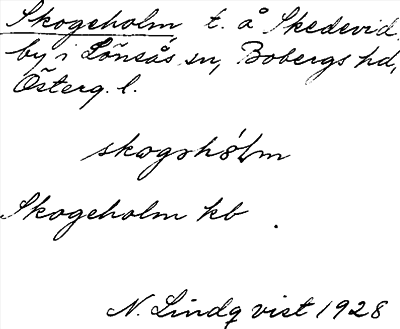 Skogeholm t. å Skedevid
by i Lönsås sn, Bobergs hd,
Österg. l.
skogshólm
Skogeholm kb.
N. Lindqvist 1928